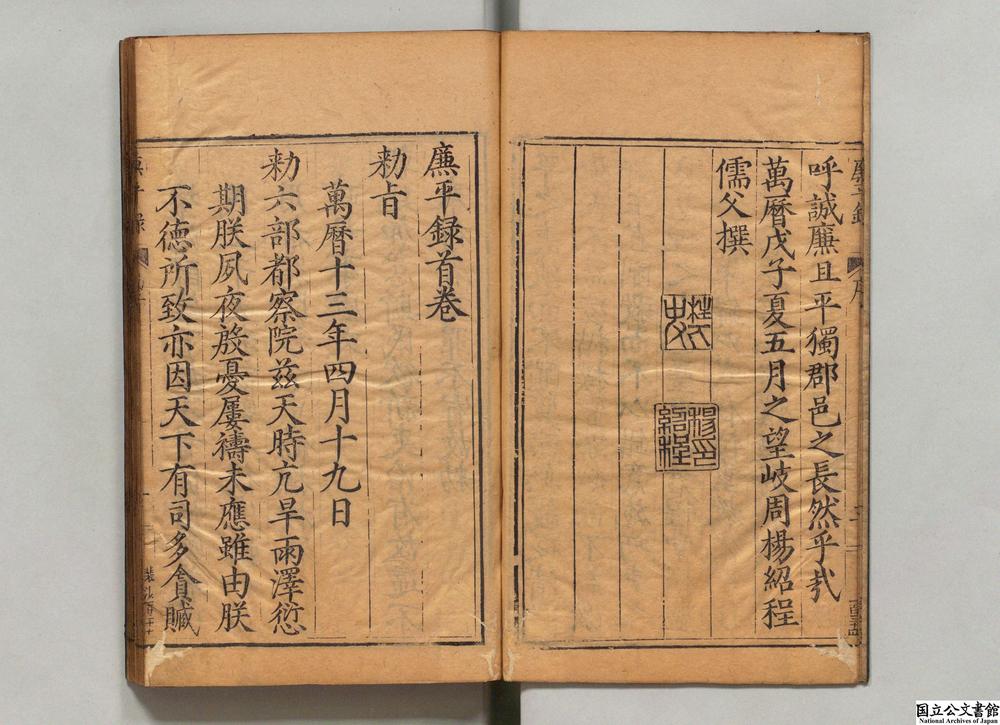 呼誠廉且平獨郡邑之長然乎哉
萬曆戊子夏五月之望岐周楊紹程
儒父撰
楊紹程
廉平録首卷
勑旨
萬曆十三年四月十九日
勑六部都察院兹天時亢旱雨澤愆
期朕夙夜殷憂屢禱未應雖由朕
不德所致亦因天下有司多貪贓
国立公文書館
National Archives of Japan